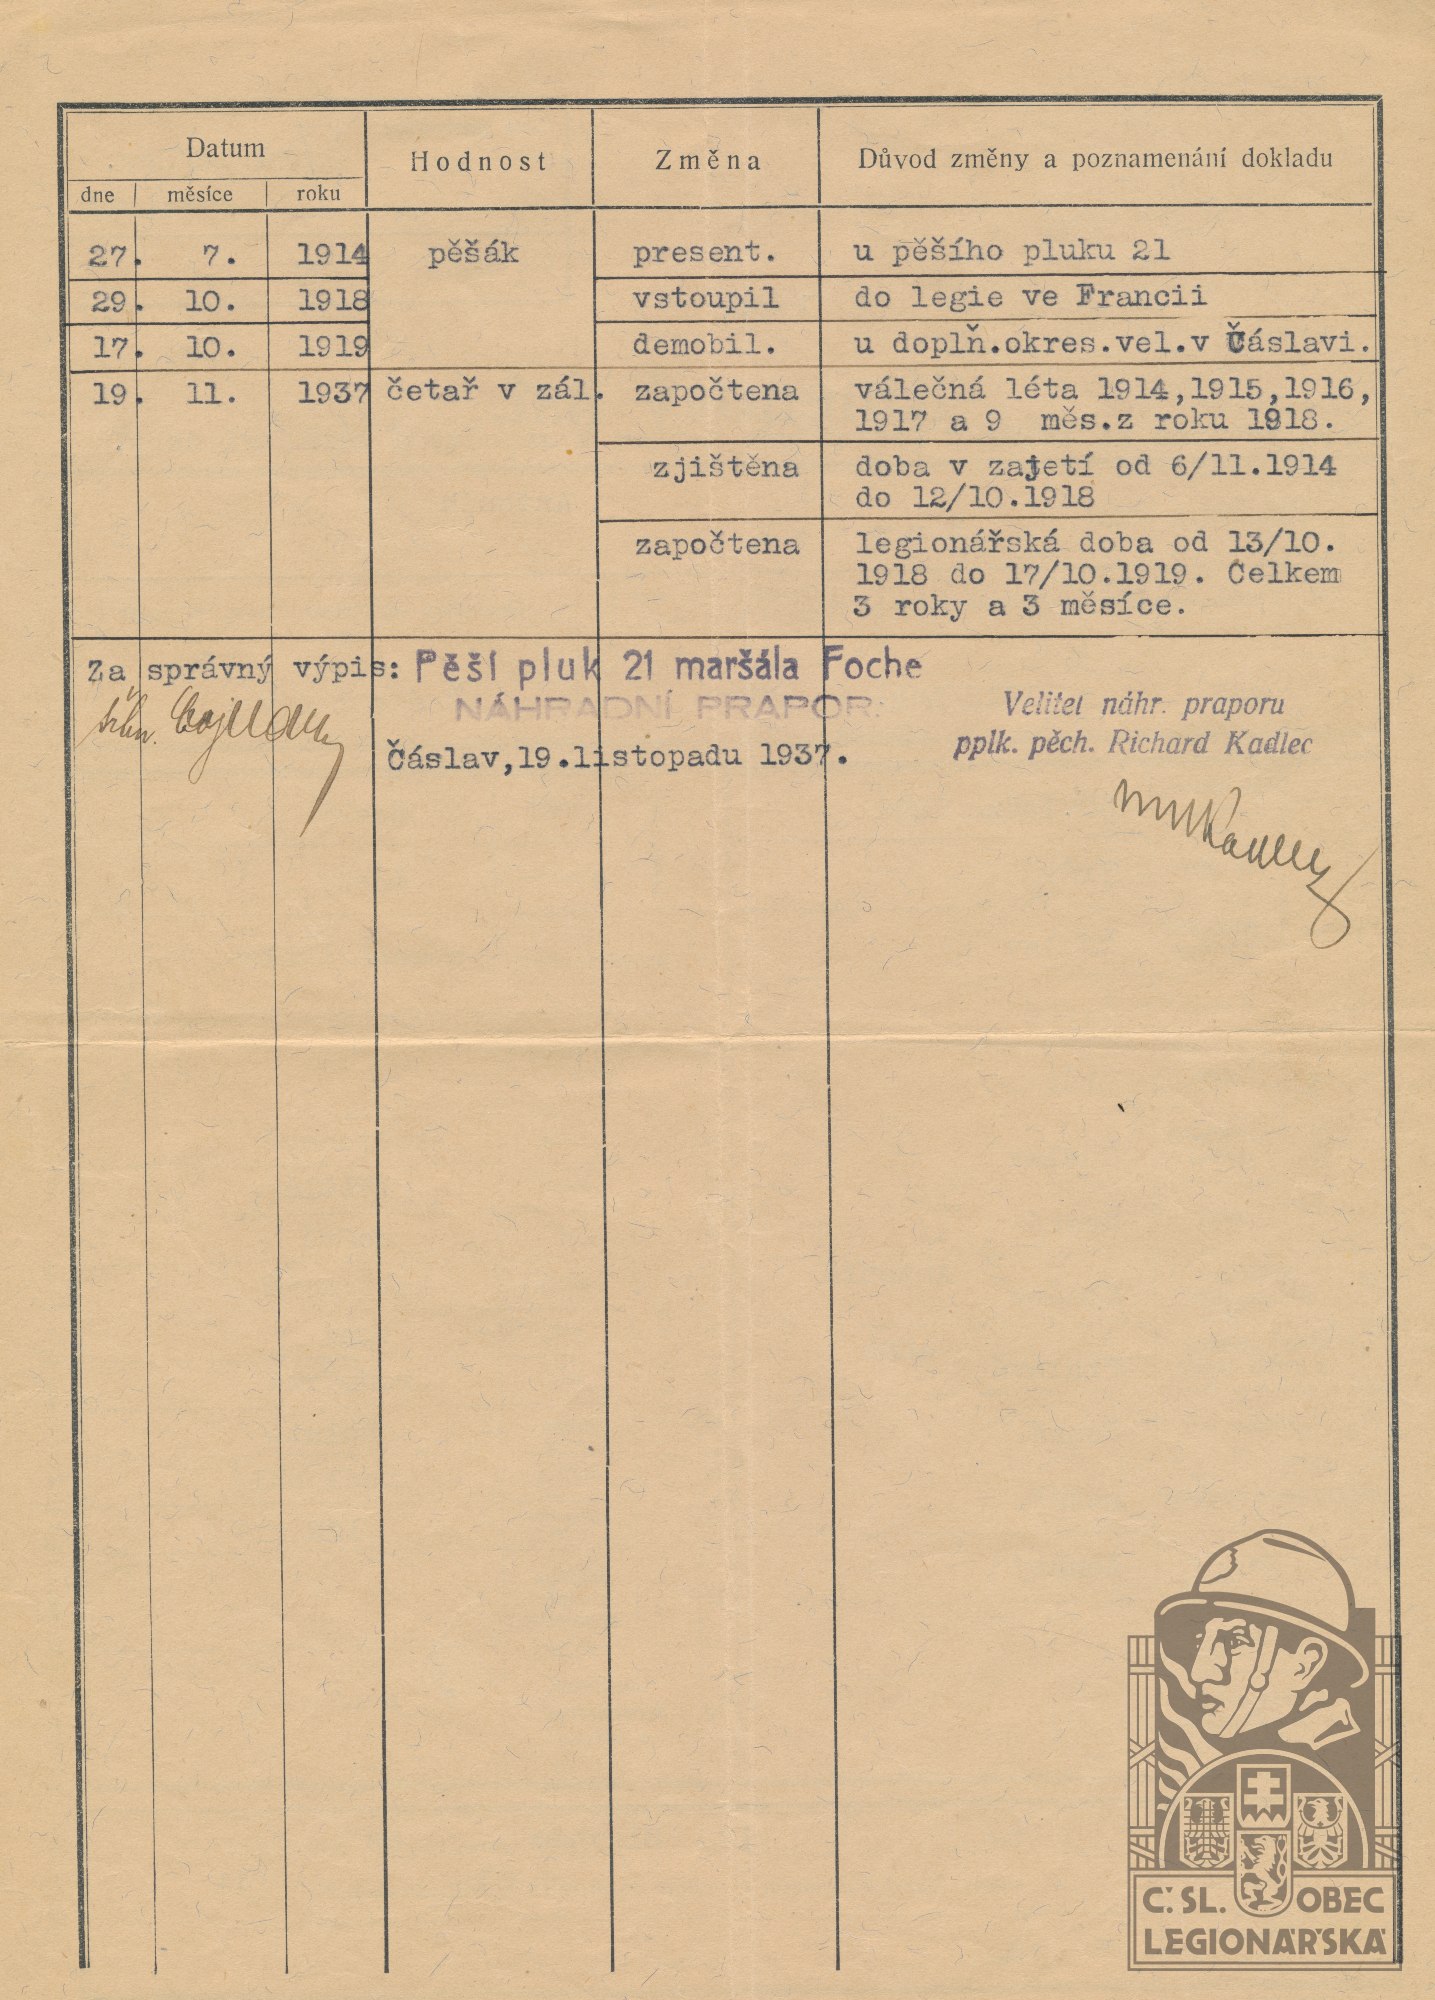 Datum
Hodnost
Změna
Důvod změny a poznamenání dokladu
dne měsíce roku
27. 7. 1914 pěšák present. u pěšího pluku 21
29. 10. 1918 vstoupil do legie ve Francii
17. 10. 1919 demobil. u doplň.okres.vel.v Čáslavi.
19. 11. 1937 četař v zál. započtena válečná léta 1914,1915,1916,
1917 a 9 měs.z roku 1918.
zjištěna doba v zajetí od 6/11.1914
do 12/10.1918
započtena legionářská doba od 13/10.
1918 do 17/10.1919. Celkem
3 roky a 3 měsíce.
Za správný výpis: Pěší pluk 21 maršála Foche
NÁHRADNÍ PRAPOR.
Velitel náhr. praporu
pplk. pěch. Richard Kadlec
Čáslav,19.listopadu 1937.
Č.SL. OBEC
LEGIONÁŘSKÁ